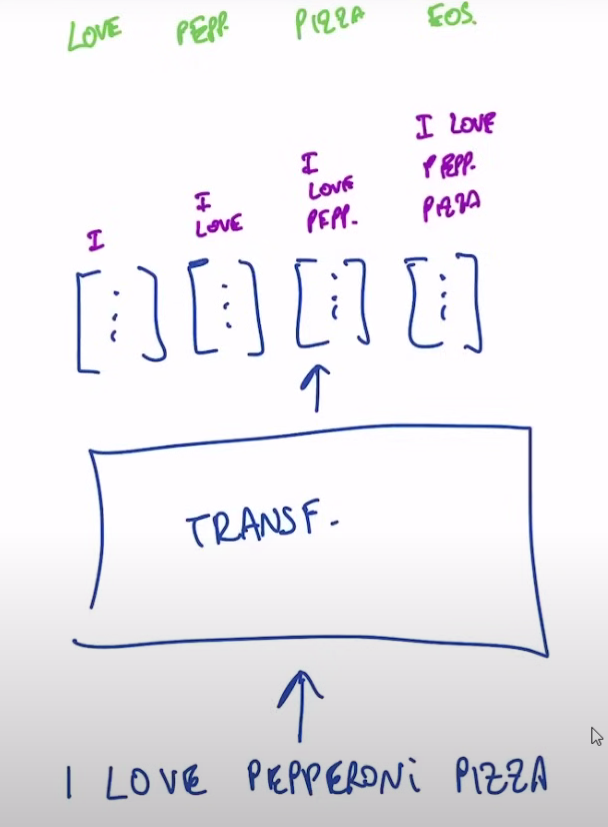 LOVE PEPP. PIZZA EOS.
I
I LOVE
I LOVE PEPP.
I LOVE PEPP. PIZZA
TRANSF.
I LOVE PEPPERONi PIZZA